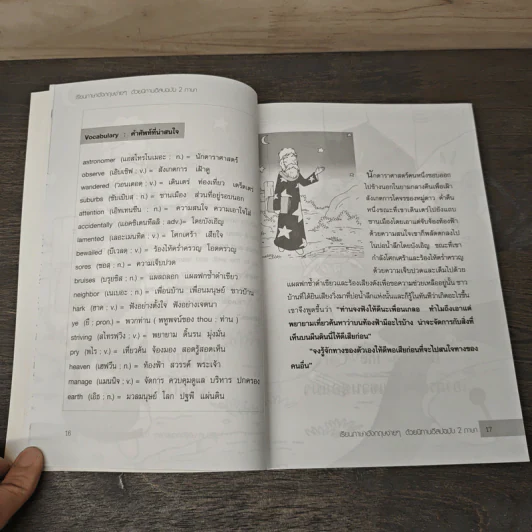 เรียนภาษาอังกฤษง่ายๆ ด้วยนิทานอีสปฉบับ 2 ภาษา
Vocabulary : คำศัพท์ที่น่าสนใจ
astronomer (แอสโทรโนเมอะ ; n.) = นักดาราศาสตร์
observe (เอิบเซิฟ ; v.) = สังเกตการ เฝ้าดู
wandered (วอนเดอด ; v.) = เดินเตร่ ท่องเที่ยว เตร็ดเตร่
suburbs (ซับเบิบส ; n.) = ชานเมือง ส่วนที่อยู่รอบนอก
attention (อัทเทนชึน ; n.) = ความสนใจ ความเอาใจใส่
accidentally (แอคซิเดนทึลลี ; adv.)= โดยบังเอิญ
lamented (เลอะเมนทิด ; v.) = โศกเศร้า เสียใจ
bewailed (บีเวลด ; v.) = ร้องไห้คร่ำครวญ โอดครวญ
sores (ซอส ; n.) = ความเจ็บปวด
bruises (บรุยซิส ; n.) = แผลถลอก แผลฟกช้ำดำเขียว
neighbor (เนเบอะ ; n.) = เพื่อนบ้าน เพื่อนมนุษย์ ชาวบ้าน
hark (ฮาค ; v.) = ฟังอย่างตั้งใจ ฟังอย่างเจตนา
ye (ยี ; pron.) = พวกท่าน ( พหูพจน์ของ thou , ท่าน )
striving (สไทรพวิง ; v.) = พยายาม ดิ้นรน มุ่งมั่น
pry (พไร ; v.) = เที่ยวค้น จ้องมอง สอดรู้สอดเห็น
heaven (เฮฟวึน ; n.) = ท้องฟ้า สวรรค์ พระเจ้า
manage (แมนนิจ ; v.) = จัดการ ควบคุมดูแล บริหาร ปกครอง
earth (เอิธ ; n.) = มวลมนุษย์ โลก ปฐพี แผ่นดิน
16
นักดาราศาสตร์คนหนึ่งชอบออก
ไปข้างนอกในยามกลางคืนเพื่อเฝ้า
สังเกตการโคจรของหมู่ดาว ค่ำคืน
หนึ่งขณะที่เขาเดินเตร่ไปยังแถบ
ชานเมืองโดยเอาแต่จับจ้องท้องฟ้า
ด้วยความสนใจเขาก็พลัดตกลงไป
ในบ่อน้ำลึกโดยบังเอิญ ขณะที่เขา
กำลังโศกเศร้าและร้องไห้คร่ำครวญ
ด้วยความเจ็บปวดและเต็มไปด้วย
แผลฟกช้ำดำเขียวและร้องเสียงดังเพื่อขอความช่วยเหลืออยู่นั้น ชาว
บ้านที่ได้ยินเสียงวิ่งมาที่บ่อน้ำลึกแห่งนั้นและก็รู้ในทันทีว่าเกิดอะไรขึ้น
เขาจึงพูดขึ้นว่า "ท่านจงฟังให้ดีนะเพื่อนเกลอ ทำไมถึงเอาแต่
พยายามเที่ยวค้นหาว่าบนท้องฟ้ามีอะไรบ้าง น่าจะจัดการกับสิ่งที่
เห็นบนผืนดินนี้ให้ดีเสียก่อน"
"จงรู้จักทางของตัวเองให้ดีพอเสียก่อนที่จะไปสนใจทางของ
คนอื่น"
เรียนภาษาอังกฤษง่ายๆ ด้วยนิทานอีสปฉบับ 2 ภาษา 17